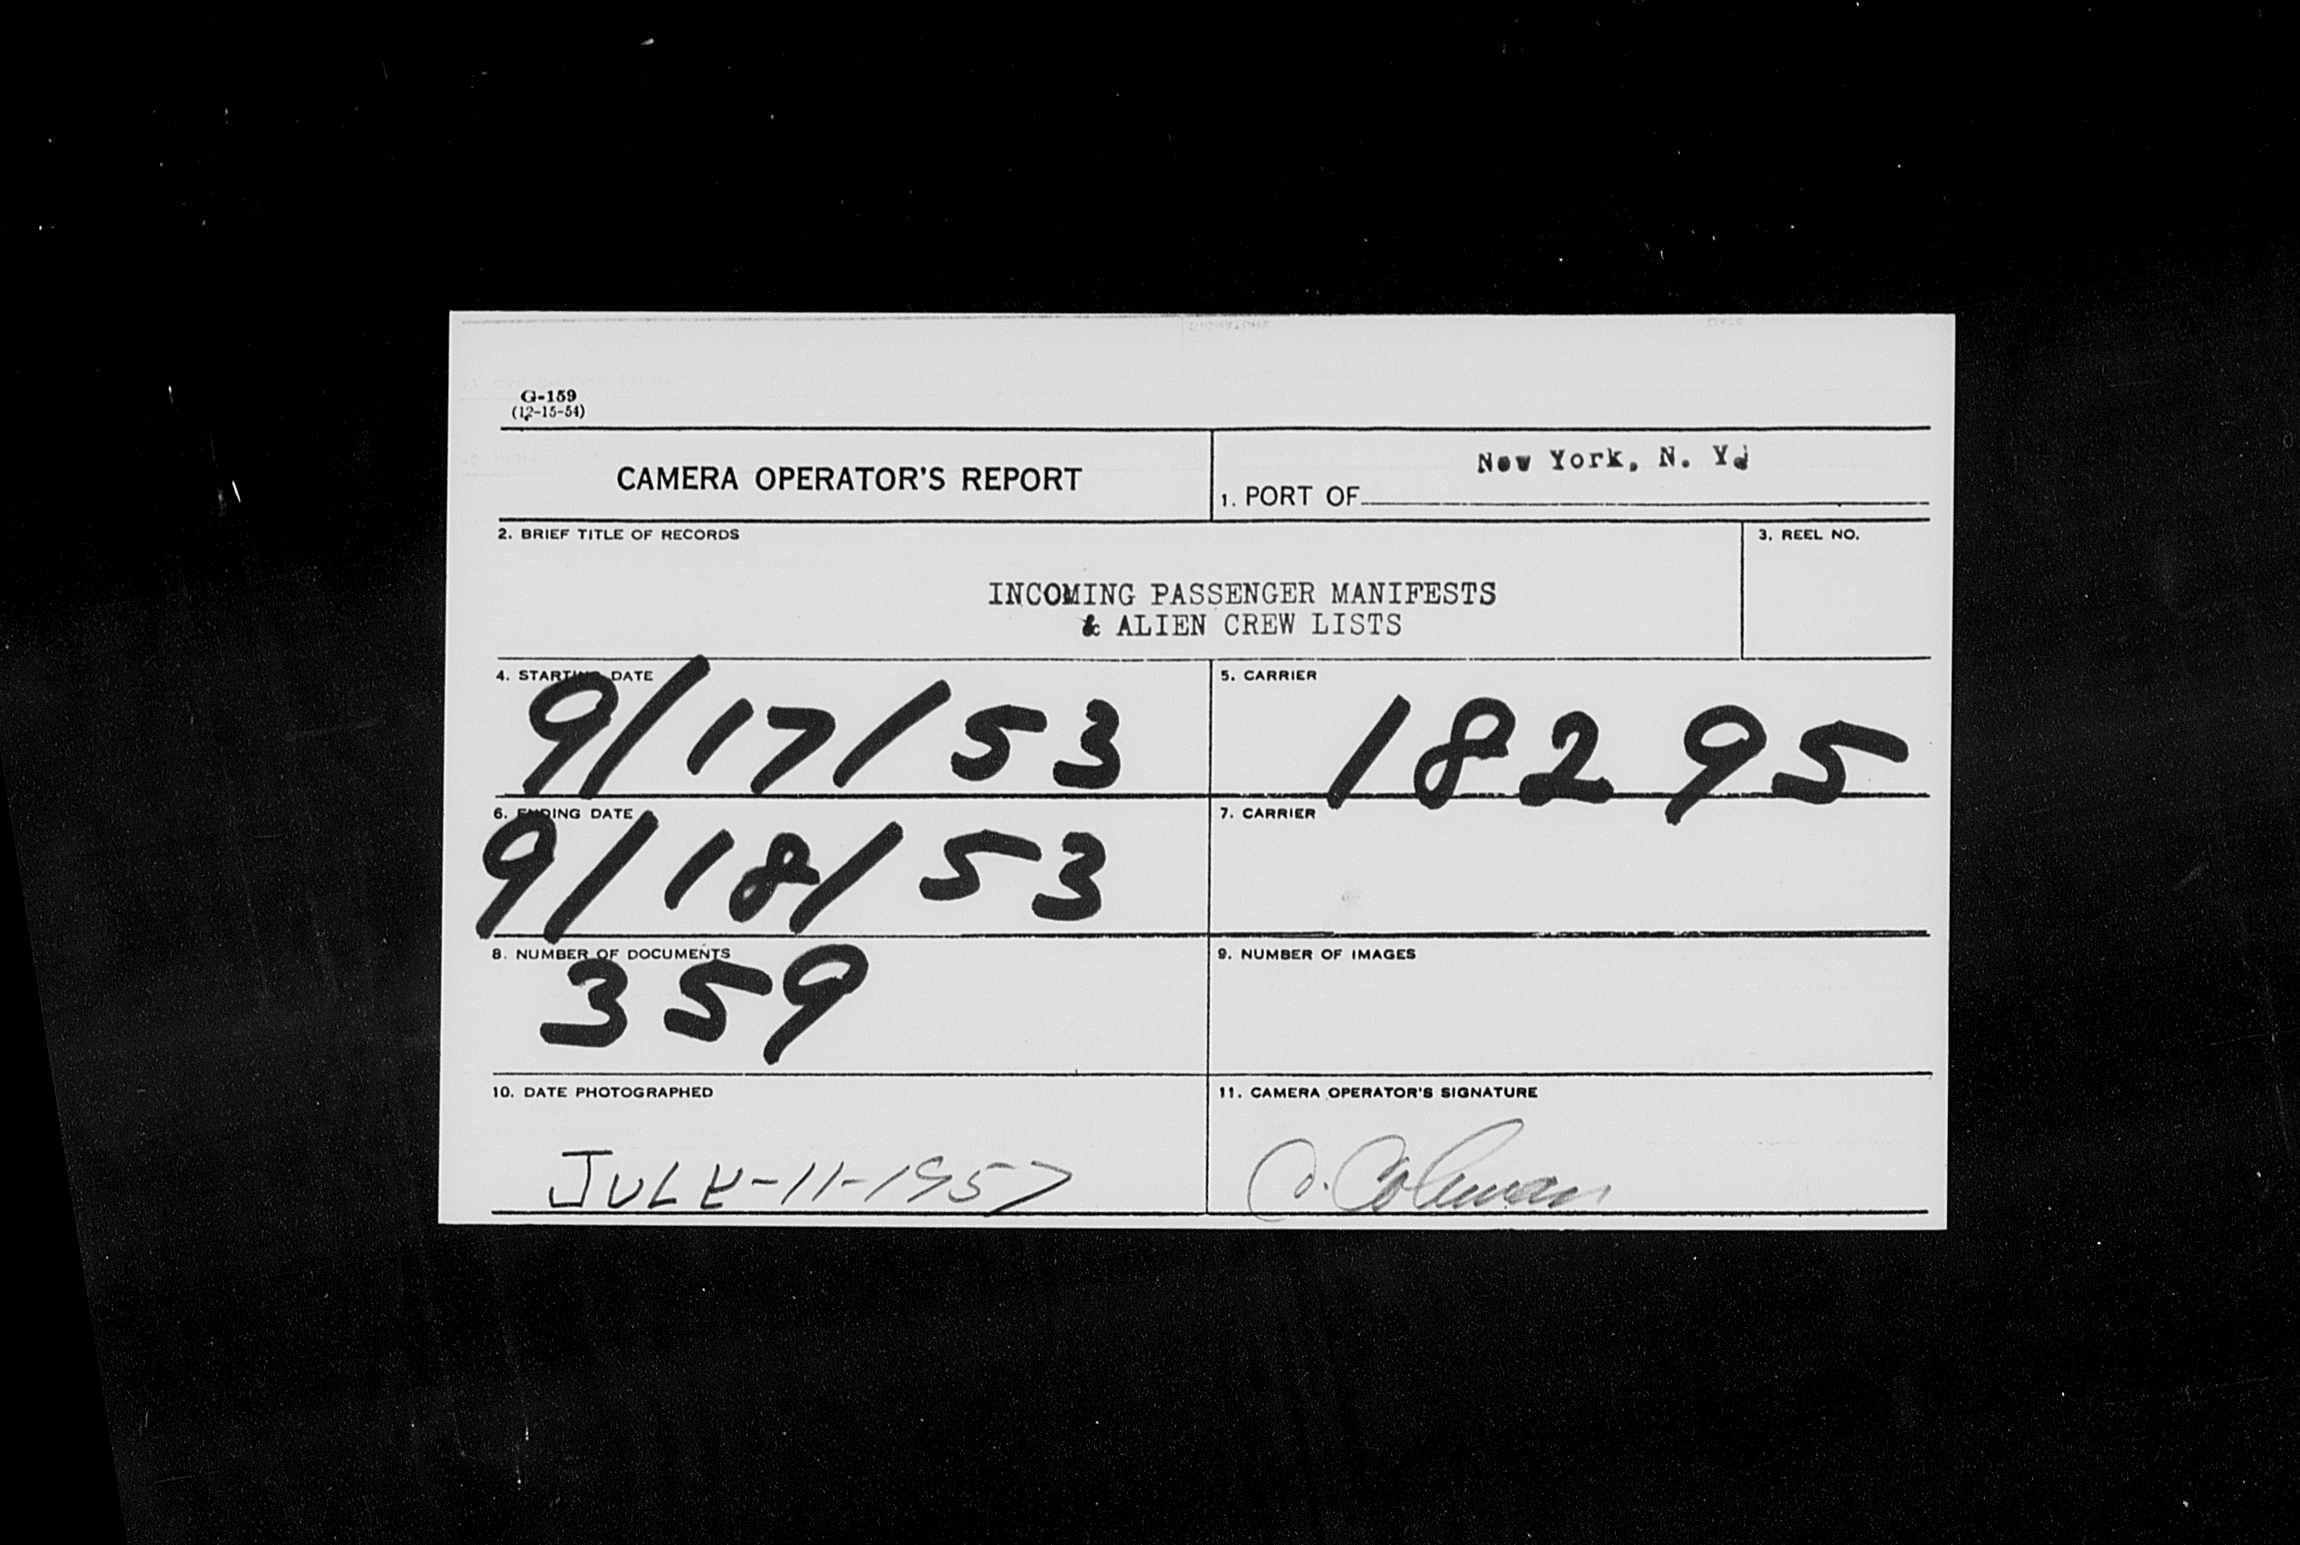 G-159
(12-15-54)
CAMERA OPERATOR'S REPORT
New York, N. Y.
1. PORT OF
2. BRIEF TITLE OF RECORDS
3. REEL NO.
INCOMING PASSENGER MANIFESTS
& ALIEN CREW LISTS
4. STARTING DATE
9/17/53
5. CARRIER
18295
6. ENDING DATE
9/18/53
7. CARRIER
8. NUMBER OF DOCUMENTS
359
9. NUMBER OF IMAGES
10. DATE PHOTOGRAPHED
JULY-11-1957
11. CAMERA OPERATOR'S SIGNATURE
Coleman